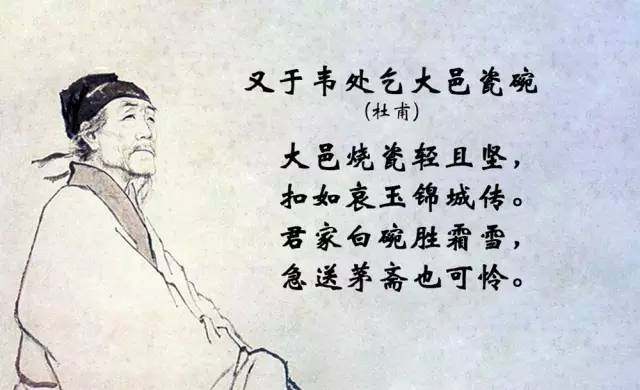 又于韦处乞大邑瓷碗
(杜甫)
大邑烧瓷轻且坚，
扣如哀玉锦城传。
君家白碗胜霜雪，
急送茅斋也可怜。